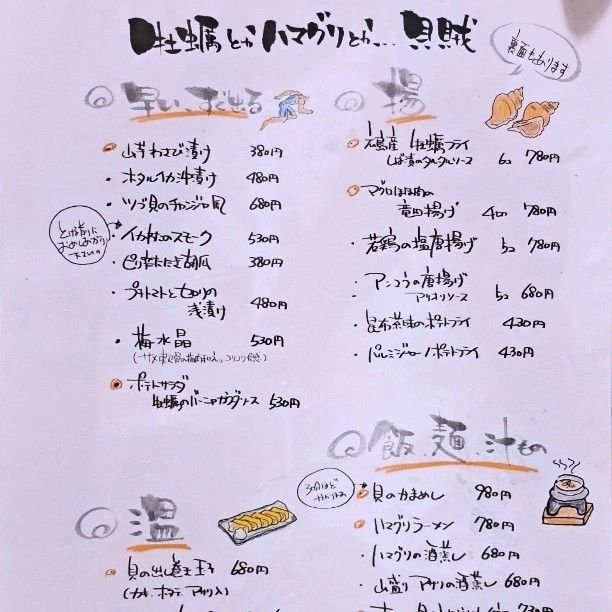 牡蠣とかハマグリとか… 貝賊
裏面もあります
早い、すぐ出る
山芋わさび漬け 380円
ホタルイカ沖漬け 480円
ツブ貝のチャンジャ風 680円
イカ肝のスモーク 530円
ピリ辛たたき胡瓜 380円
プチトマトとセロリの
浅漬け 480円
梅水晶 530円
ポテトサラダ
牡蠣のバーニャカウダソース 530円
揚
広島産 牡蠣フライ
しば漬のタルタルソース 6コ 780円
マグロほほ肉の
竜田揚げ 4コ 780円
若鶏の塩唐揚げ 5コ 780円
アンコウの唐揚げ
アサリソース 5コ 680円
昆布茶味のポテトフライ 430円
パルミジャーノポテトフライ 430円
飯、麺、汁もの
30分ほど
かかります
貝のかまめし 980円
ハマグリラーメン 780円
ハマグリの酒蒸し 680円
山盛りアサリの酒蒸し 680円
温
貝の出し巻き玉子 680円
(カキ、ホタテ、アサリ入り)